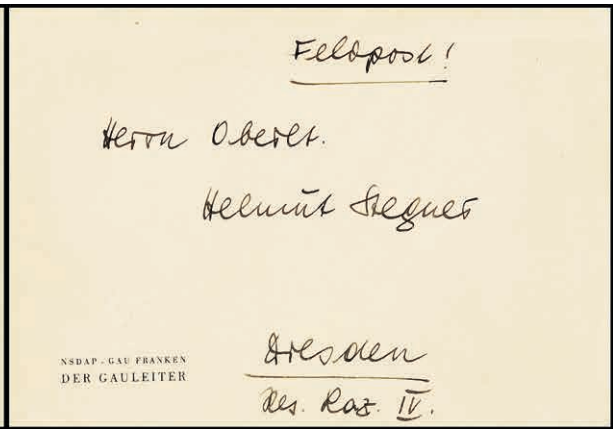 Feldpost!
Herrn Oberlt.
Helmut Stegner
NSDAP - GAU FRANKEN
DER GAULEITER
Dresden
Res. Laz. IV.